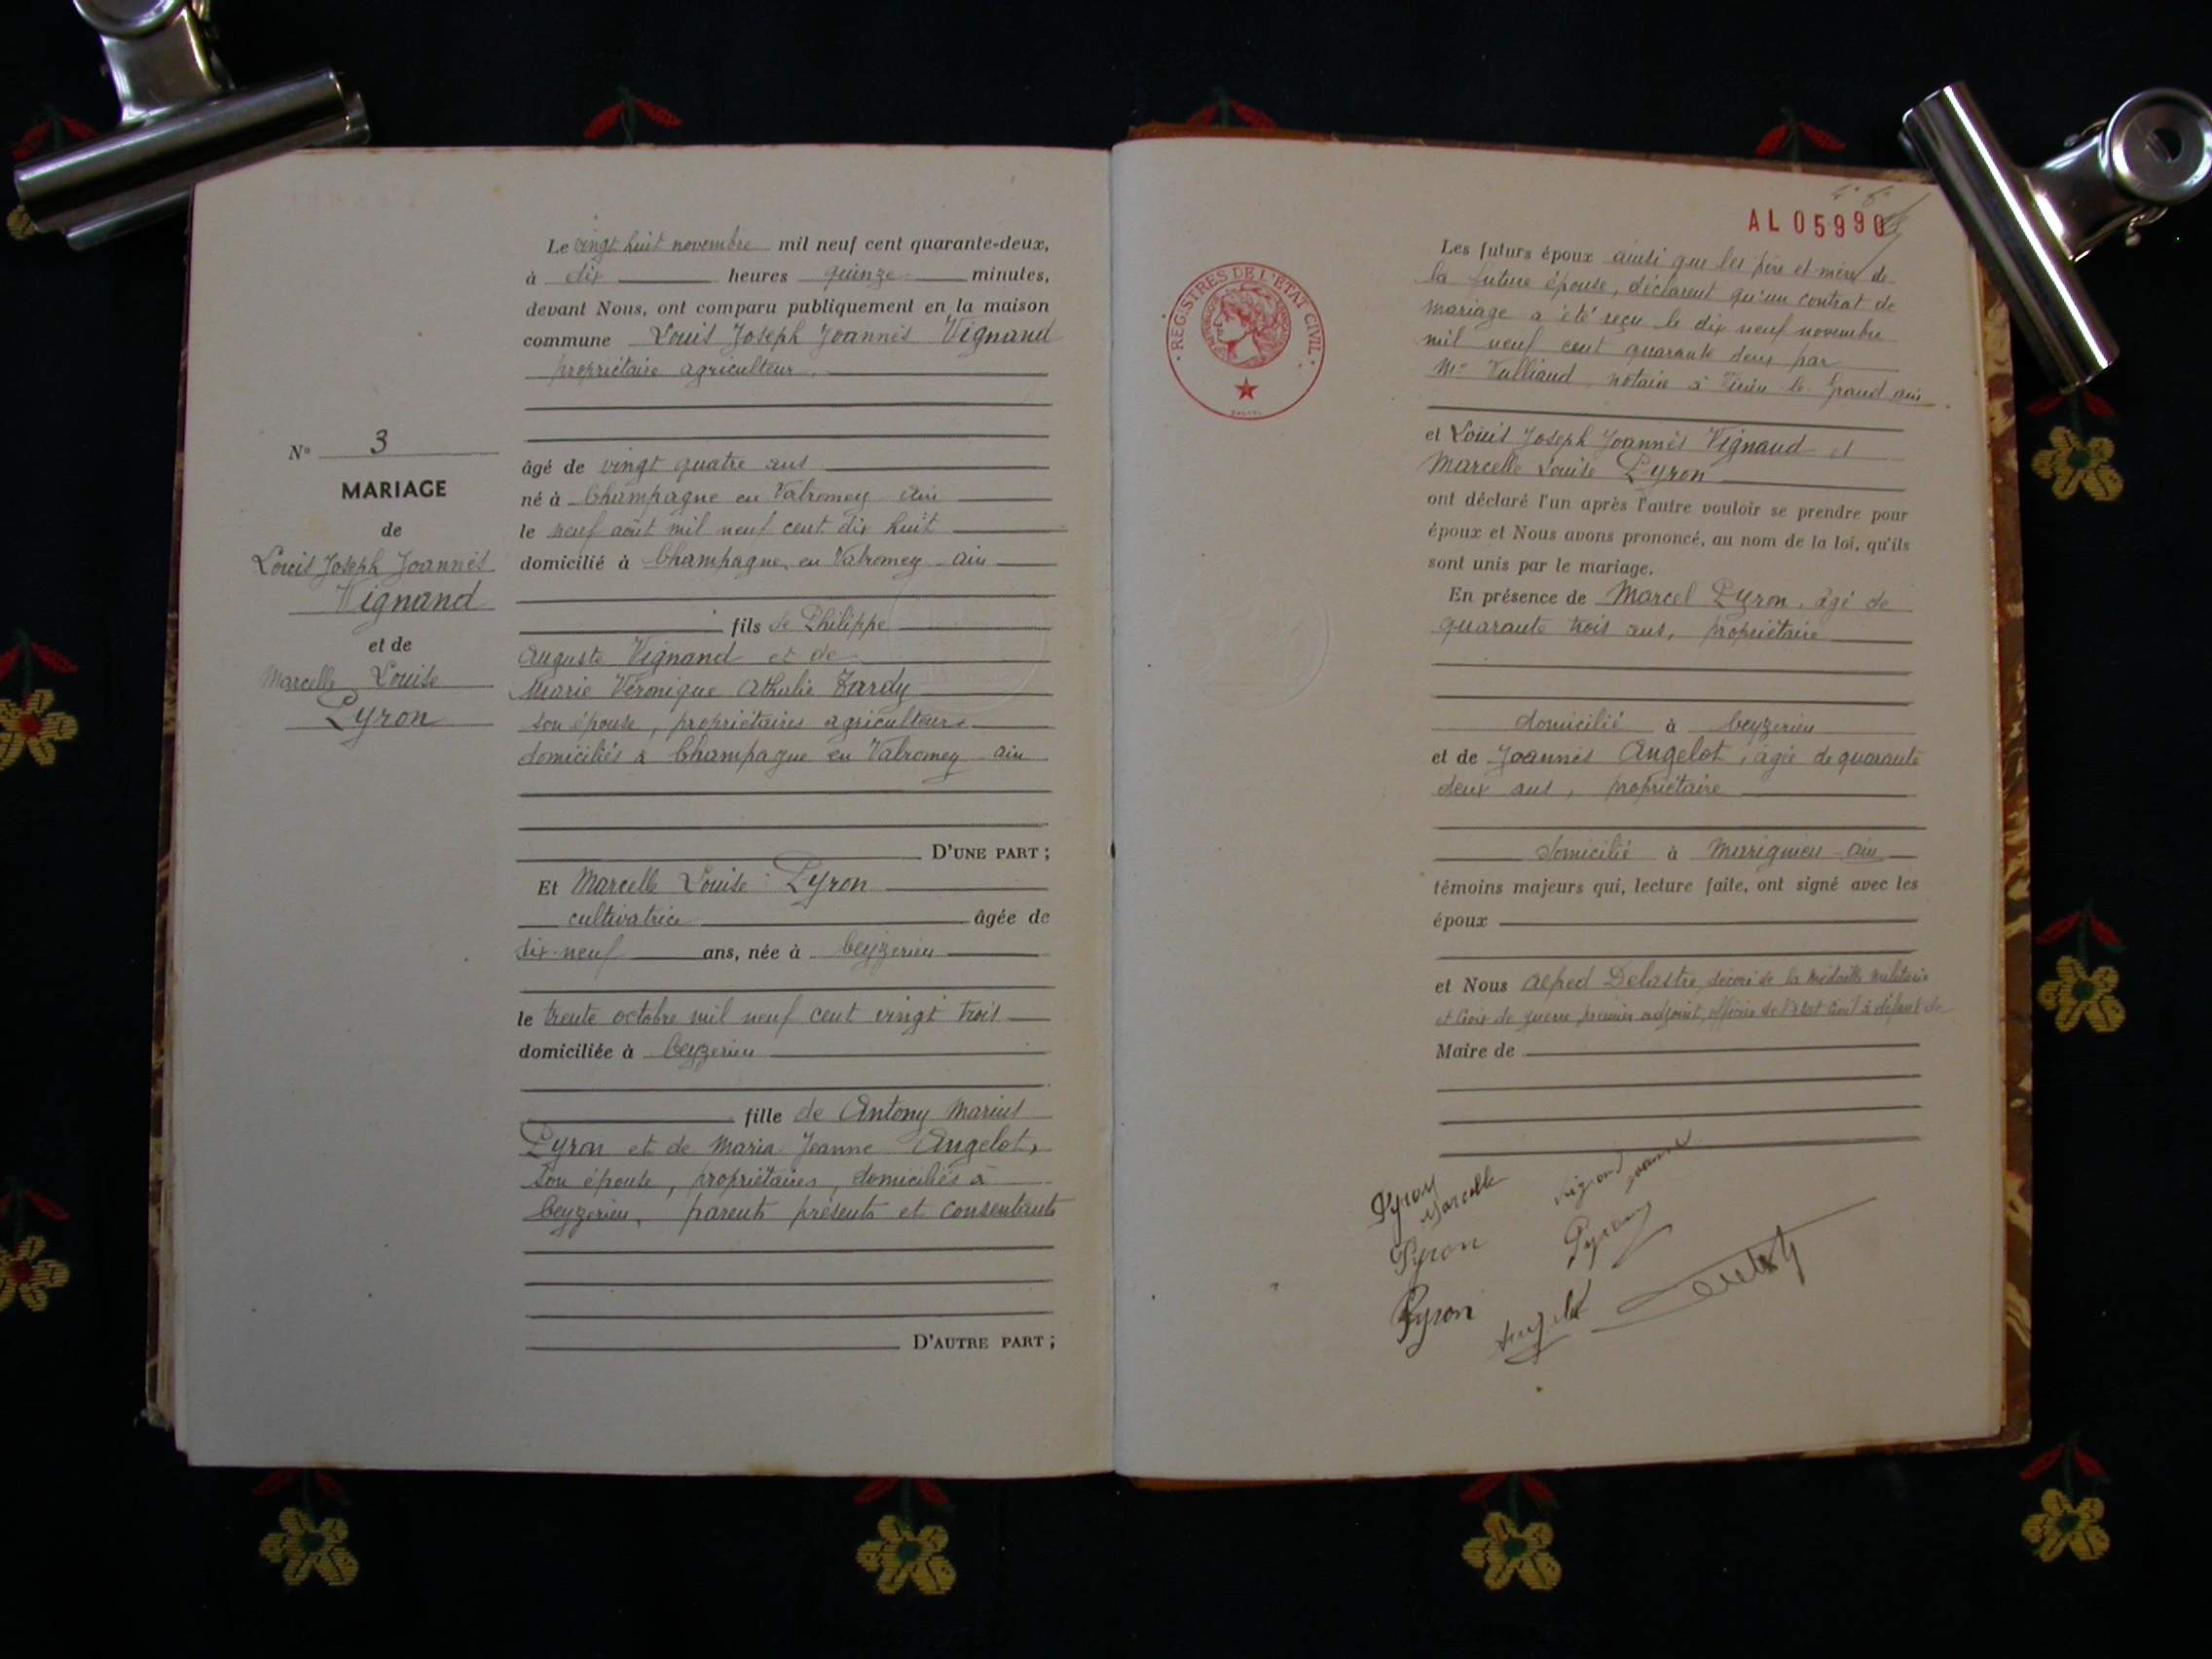 N° 3
MARIAGE
de
Louis Joseph Joannès
Vignand
et de
Marcelle Louise
Pyron
Le vingt huit novembre mil neuf cent quarante-deux,
à dix heures quinze minutes,
devant Nous, ont comparu publiquement en la maison
commune Louis Joseph Joannès Vignand
propriétaire agriculteur
âgé de vingt quatre ans
né à Champagne en Valromey Ain
le neuf août mil neuf cent dix huit
domicilié à Champagne en Valromey Ain
fils de Philippe
Auguste Vignand et de
Marie Véronique Athalie Tardy
son épouse, propriétaires agriculteurs
domiciliés à Champagne en Valromey ain
D'UNE PART ;
Et Marcelle Louise Pyron
cultivatrice âgée de
dix-neuf ans, née à Ceyzerieu
le trente octobre mil neuf cent vingt trois
domiciliée à Ceyzerieu
fille de Antony Marius
Pyron et de Maria Jeanne Angelot,
son épouse, propriétaires, domiciliés à
Ceyzerieu, parents présents et consentants
D'AUTRE PART ;
AL 05990
REGISTRES DE L'ETAT CIVIL
Les futurs époux ainsi que les père et mère de
la future épouse, déclarent qu'un contrat de
mariage a été reçu le dix neuf novembre
mil neuf cent quarante deux par
Me Vulliaud notaire à Virieu le Grand ain
et Louis Joseph Joannès Vignand et
Marcelle Louise Pyron
ont déclaré l'un après l'autre vouloir se prendre pour
époux et Nous avons prononcé, au nom de la loi, qu'ils
sont unis par le mariage.
En présence de Marcel Pyron, âgé de
quarante trois ans, propriétaire
domicilié à Ceyzerieu
et de Joannès Angelot, âgée de quarante
deux ans, propriétaire
domicilié à Marignieu ain
témoins majeurs qui, lecture faite, ont signé avec les
époux
et Nous Alfred Delastre, décoré de la Médaille militaire
et Croix de guerre premier adjoint, officier de l'état Civil à défaut de
Maire de
Pyron
Marcelle
Vignand
Joannès
Pyron
Pyron
Angelot